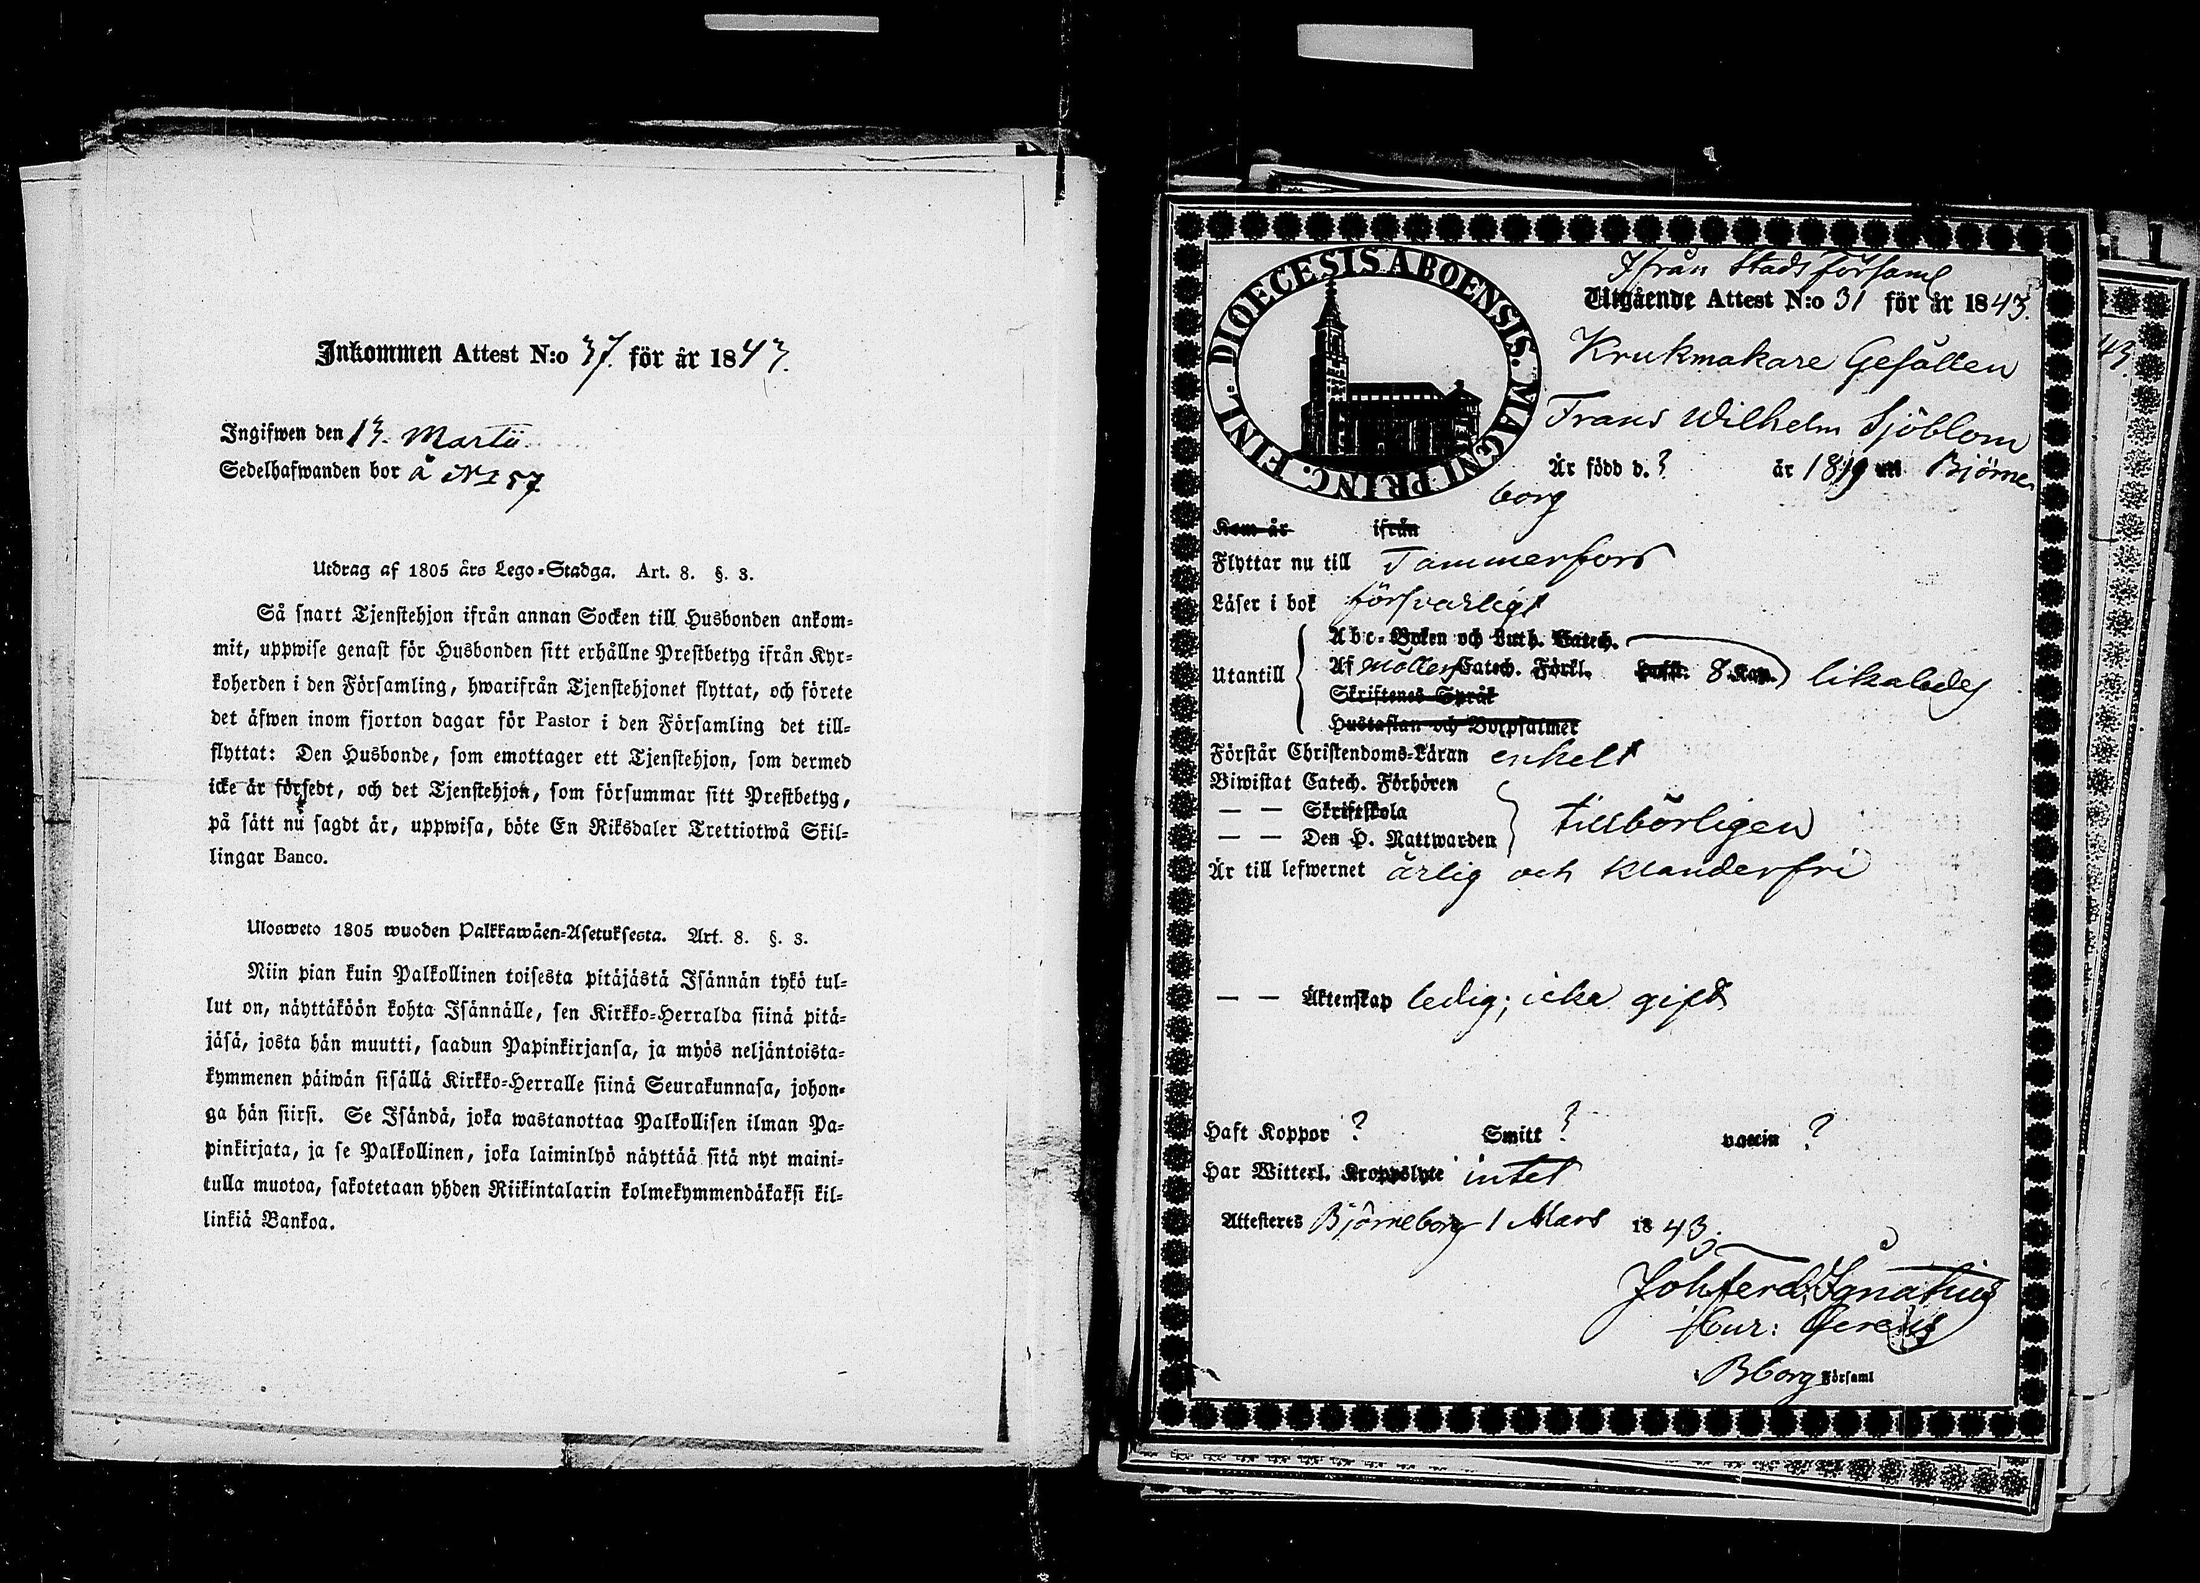 Inkommen Attest N:o 37. för år 1843.
Ingifwen den 13. Martii.
Sedelhafwanden bor å No 57
Utdrag af 1805 års Lego-Stadga. Art. 8. §. 3.
Så snart Tjenstehjon ifrån annan Socken till Husbonden ankom-
mit, uppwise genast för Husbonden sitt erhållne Prestbetyg ifrån Kyr-
koherden i den Församling, hwarifrån Tjenstehjonet flyttat, och förete
det äfwen inom fjorton dagar för Pastor i den Församling det till-
flyttat: Den Husbonde, som emottager ett Tjenstehjon, som dermed
icke är försedt, och det Tjenstehjon, som försummar sitt Prestbetyg,
på sätt nu sagdt är, uppwisa, böte En Riksdaler Trettiotwå Skil-
lingar Banco.
Ulosweto 1805 wuoden Palkkawäen-Asetuksesta. Art. 8. §. 3.
Niin pian kuin Palkollinen toisesta pitäjästä Isännän tykö tul-
lut on, näyttäköön kohta Isännälle, sen Kirkko-Herralda siinä pitä-
jäsä, josta hän muutti, saadun Papinkirjansa, ja myös neljäntoista-
kymmenen päiwän sisällä Kirkko-Herralle siinä Seurakunnasa, johon-
ga hän siirsi. Se Isändä, joka wastanottaa Palkollisen ilman Pa-
pinkirjata, ja se Palkollinen, joka laiminlyö näyttää sitä nyt maini-
tulla muotoa, sakotetaan yhden Riikintalarin kolmekymmendäkaksi kil-
linkiä Bankoa.
DIOECESIS ABOENSIS. MAGNI PRINC. FINL.
Ifrån Stads församl
Utgående Attest N:o 31 för år 1843.
Krukmakare Gesällen
Frans Wilhelm Sjöblom
Är född d. ? år 1819 uti Björne
borg
Kom år ifrån
Flyttar nu till Tammerfors
Läser i bok försvarligt
Utantill
Abc-Boken och Luth. Catech.
Af Möllers Catech. Förkl. 8 Kap. likaledes
Skriftenes Språk
Hustaflan och Botpsalmer
Förstår Christendoms-Läran enkelt
Biwistat Catech. Förhören
— — Skriftskola tillbörligen
— — Den H. Nattwarden
Är till lefwernet ärlig och klanderfri
— — Äktenskap ledig; icke gift
Haft Koppor ? Smitt ? vaccin ?
Har Witterl. Kroppslyte intet
Attesteres Björneborg 1 Mars 1843.
Joh Ferd. Ignatius
i Bborg Församl